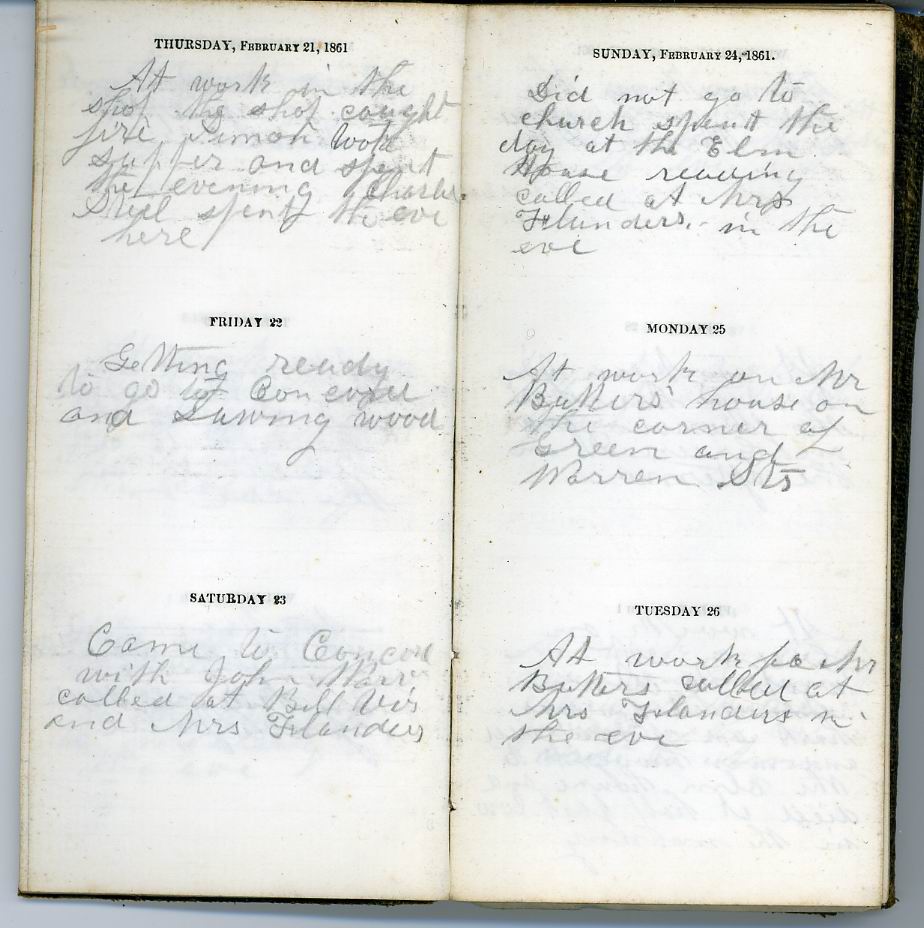 THURSDAY, FEBRUARY 21, 1861
At work in the
shop the shop caught
fire
supper and spent
the evening Charles
spent the eve
here
FRIDAY 22
Getting ready
to go to Concord
and Sawing wood
SATURDAY 23
Came to Concord
with John
called at Bill
and Mrs Flanders
SUNDAY, FEBRUARY 24, 1861.
Did not go to
church spent the
day at the Elm
House reading
called at Mrs
Flanders in the
eve
MONDAY 25
At work on Mr
Butters' house on
the corner of
Green and
Warren Sts
TUESDAY 26
At work for Mr
Butters called at
Mrs Flanders in
the eve